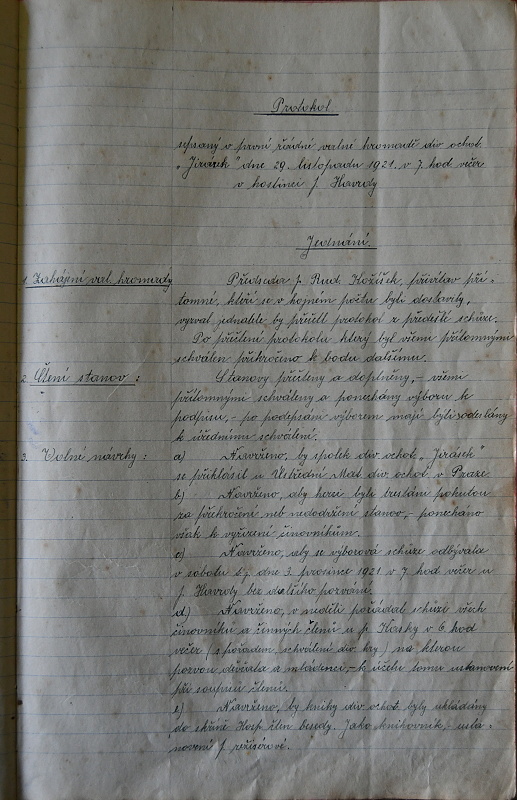 Protokol.
sepsaný o první řádné valné hromadě div. ochot.
„Jirásek" dne 29. listopadu 1921 v 7. hod večer
v hostinci p. Havrdy
Jednání.
1. Zahájení val. hromady
Předseda p. Rud. Kožíšek, přivítav pří-
tomné, kteří se v hojném počtu byli dostavily,
vyzval jednatele by přečetl protokol z předešlé schůze.
Po přečtení protokolu který byl všemi přítomnými
schválen přikročeno k bodu dalšímu.
2. Čtení stanov :
Stanovy přečteny a doplněny, - všemi
přítomnými schváleny a ponechány výboru k
podpisu, - po podepsání výborem mají býti odeslány
k úřednímu schválení.
3. Volné návrhy :
a) Navrženo, by spolek div. ochot. „Jirásek"
se přihlásil u Ústřední Mat. div. ochot. v Praze
b) Navrženo, aby herci byli trestáni pokutou
za překročení neb nedodržení stanov, - ponecháno
však k vyřízení činovníkům.
c) Navrženo, aby se výborová schůze odbývala
v sobotu t.j. dne 3. prosince 1921 v 7. hod večer u
p. Havrdy bez dalšího pozvání.
d) Navrženo, v neděli pořádat schůzi všech
činovníků a činných členů u p. Kosky v 6. hod
večer (s pořadem schválení div. hry) na kterou
pozvou děvčata a mládence, - k účelu tomu ustanoveni
při soupisu členů.
e) Navrženo, by knihy div. ochot. byly ukládány
do skříně Hosp. čten. besedy. Jako knihovník, - usta-
noveni p. režisérové.